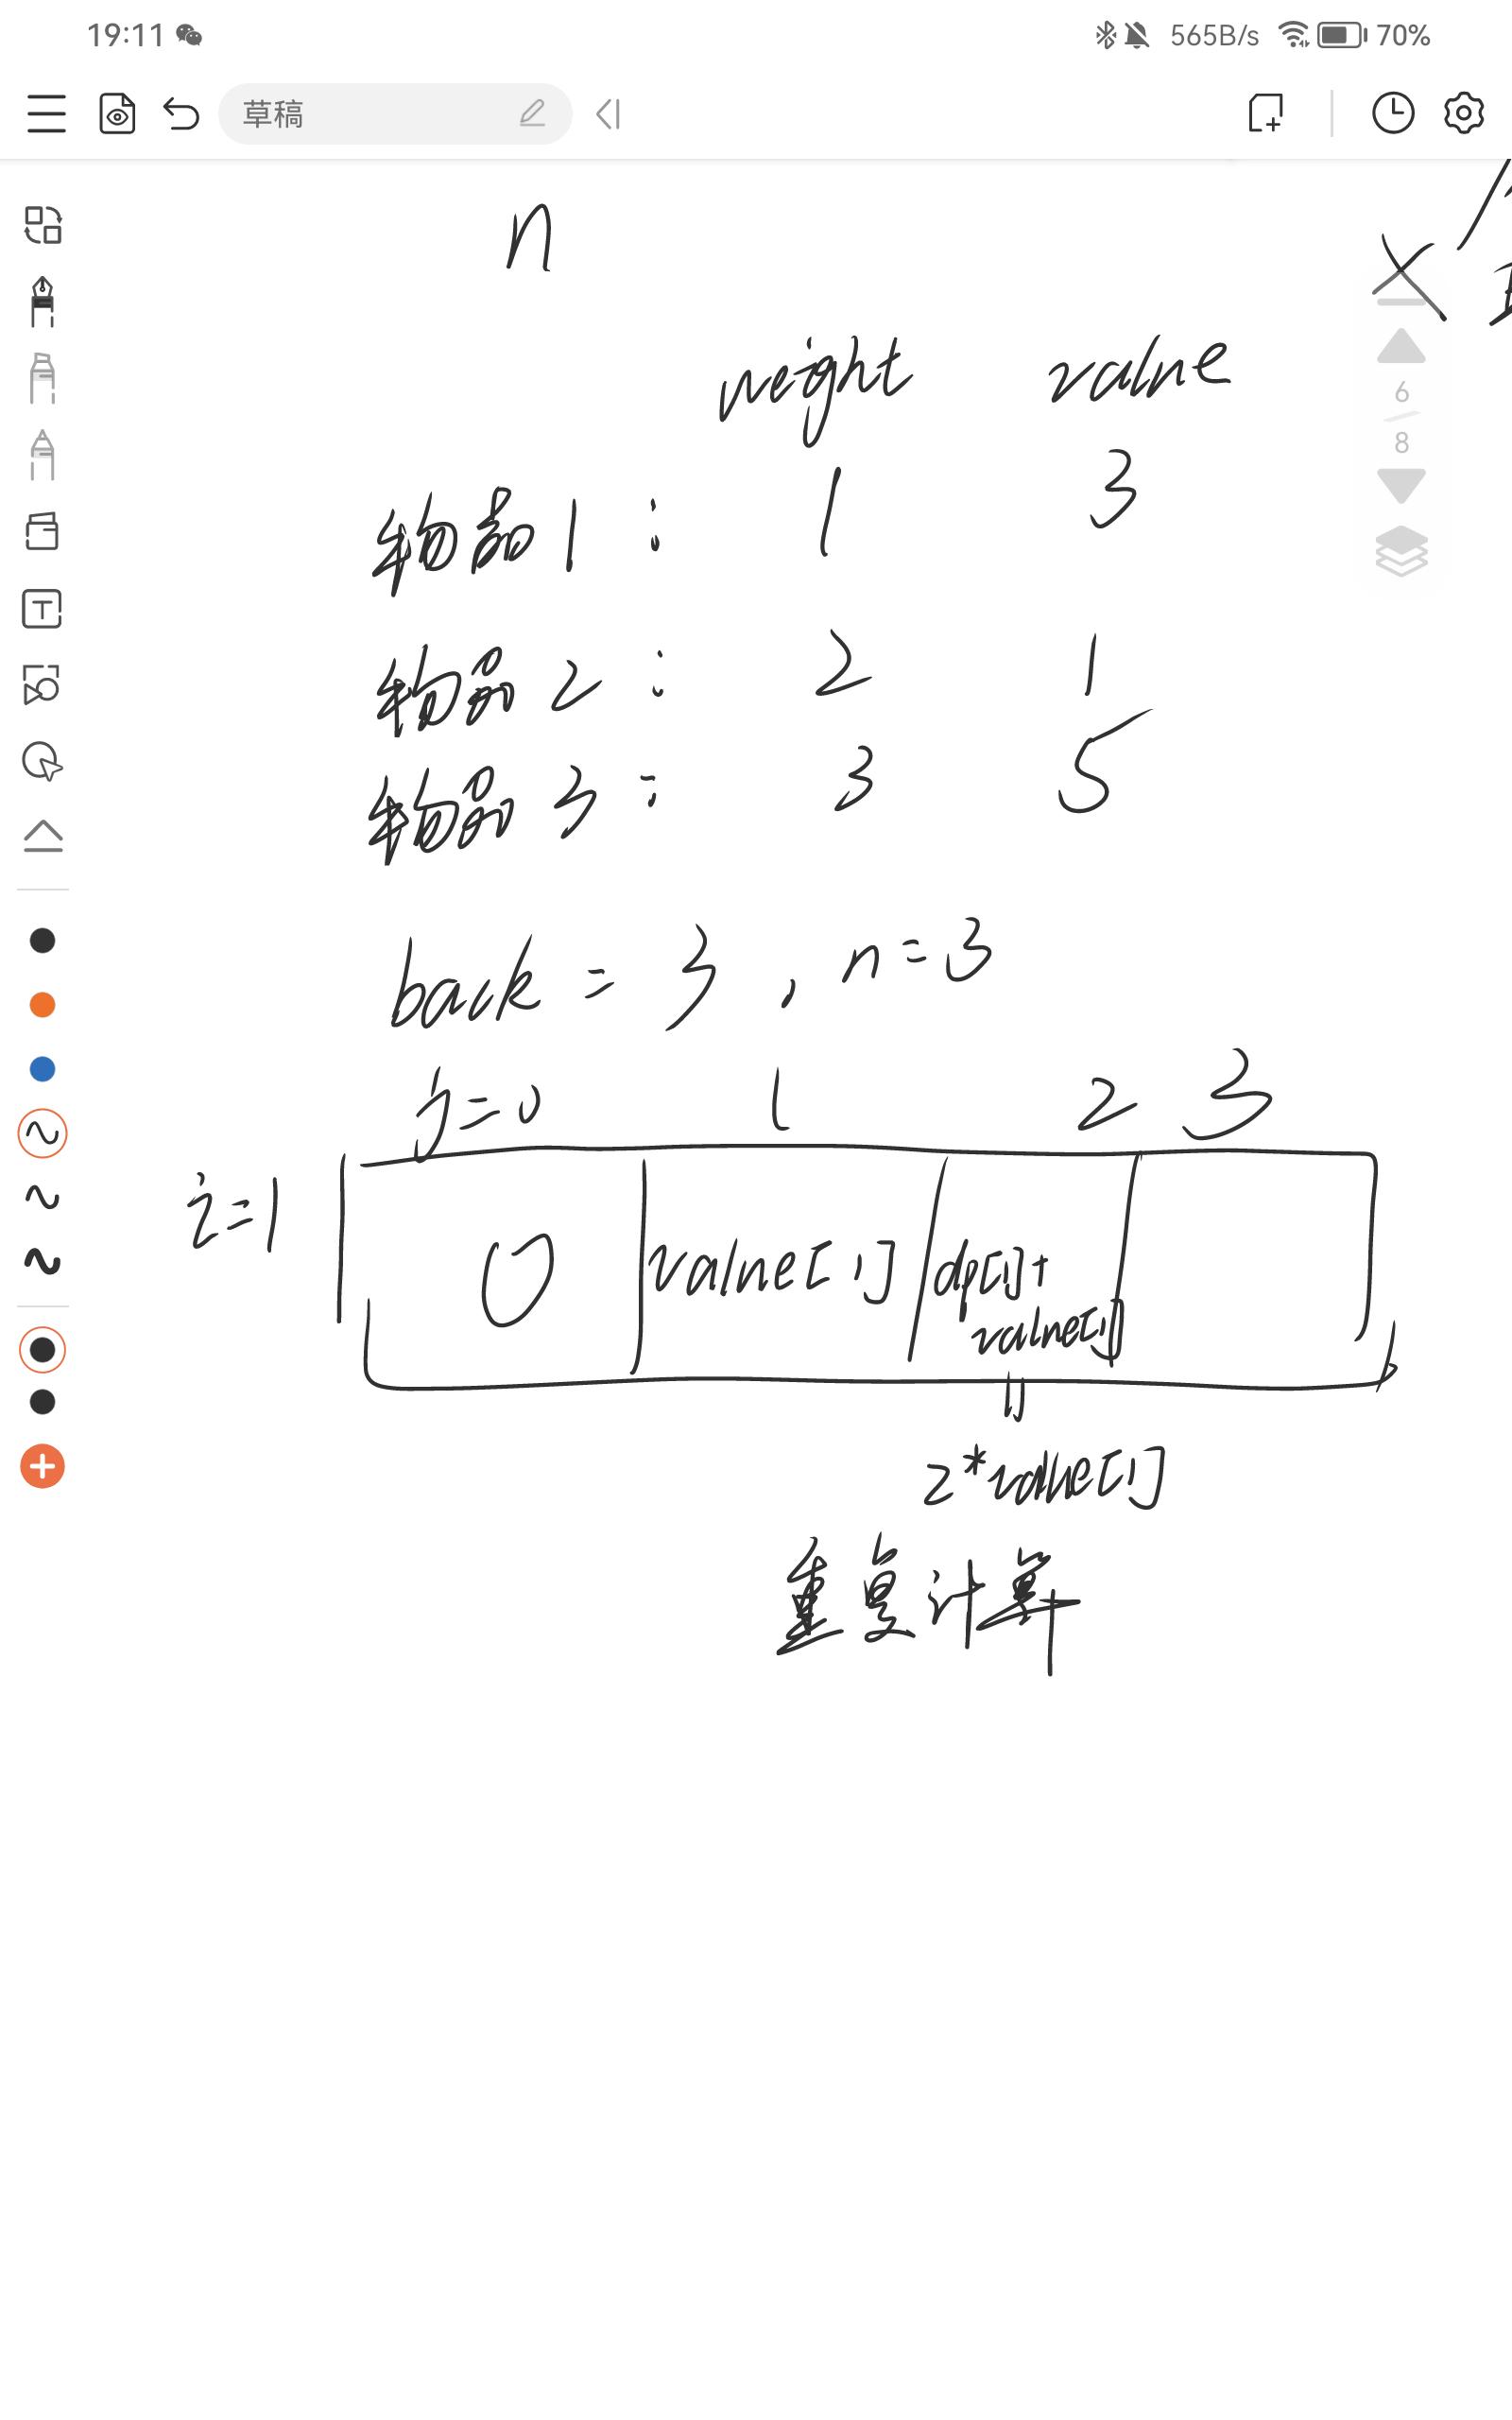 19:11 565B/s 70%
草稿
n
weight value
6
8
物品1: 1 3
物品2: 2 1
物品3: 3 5
back = 3, n=3
j=0 1 2 3
i=1 0 value[1] dp[1]+
value[1]
2*value[1]
重复计算